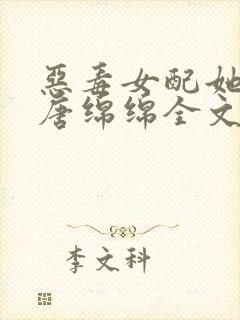 惡毒女配她
唐绵绵全文
李文科